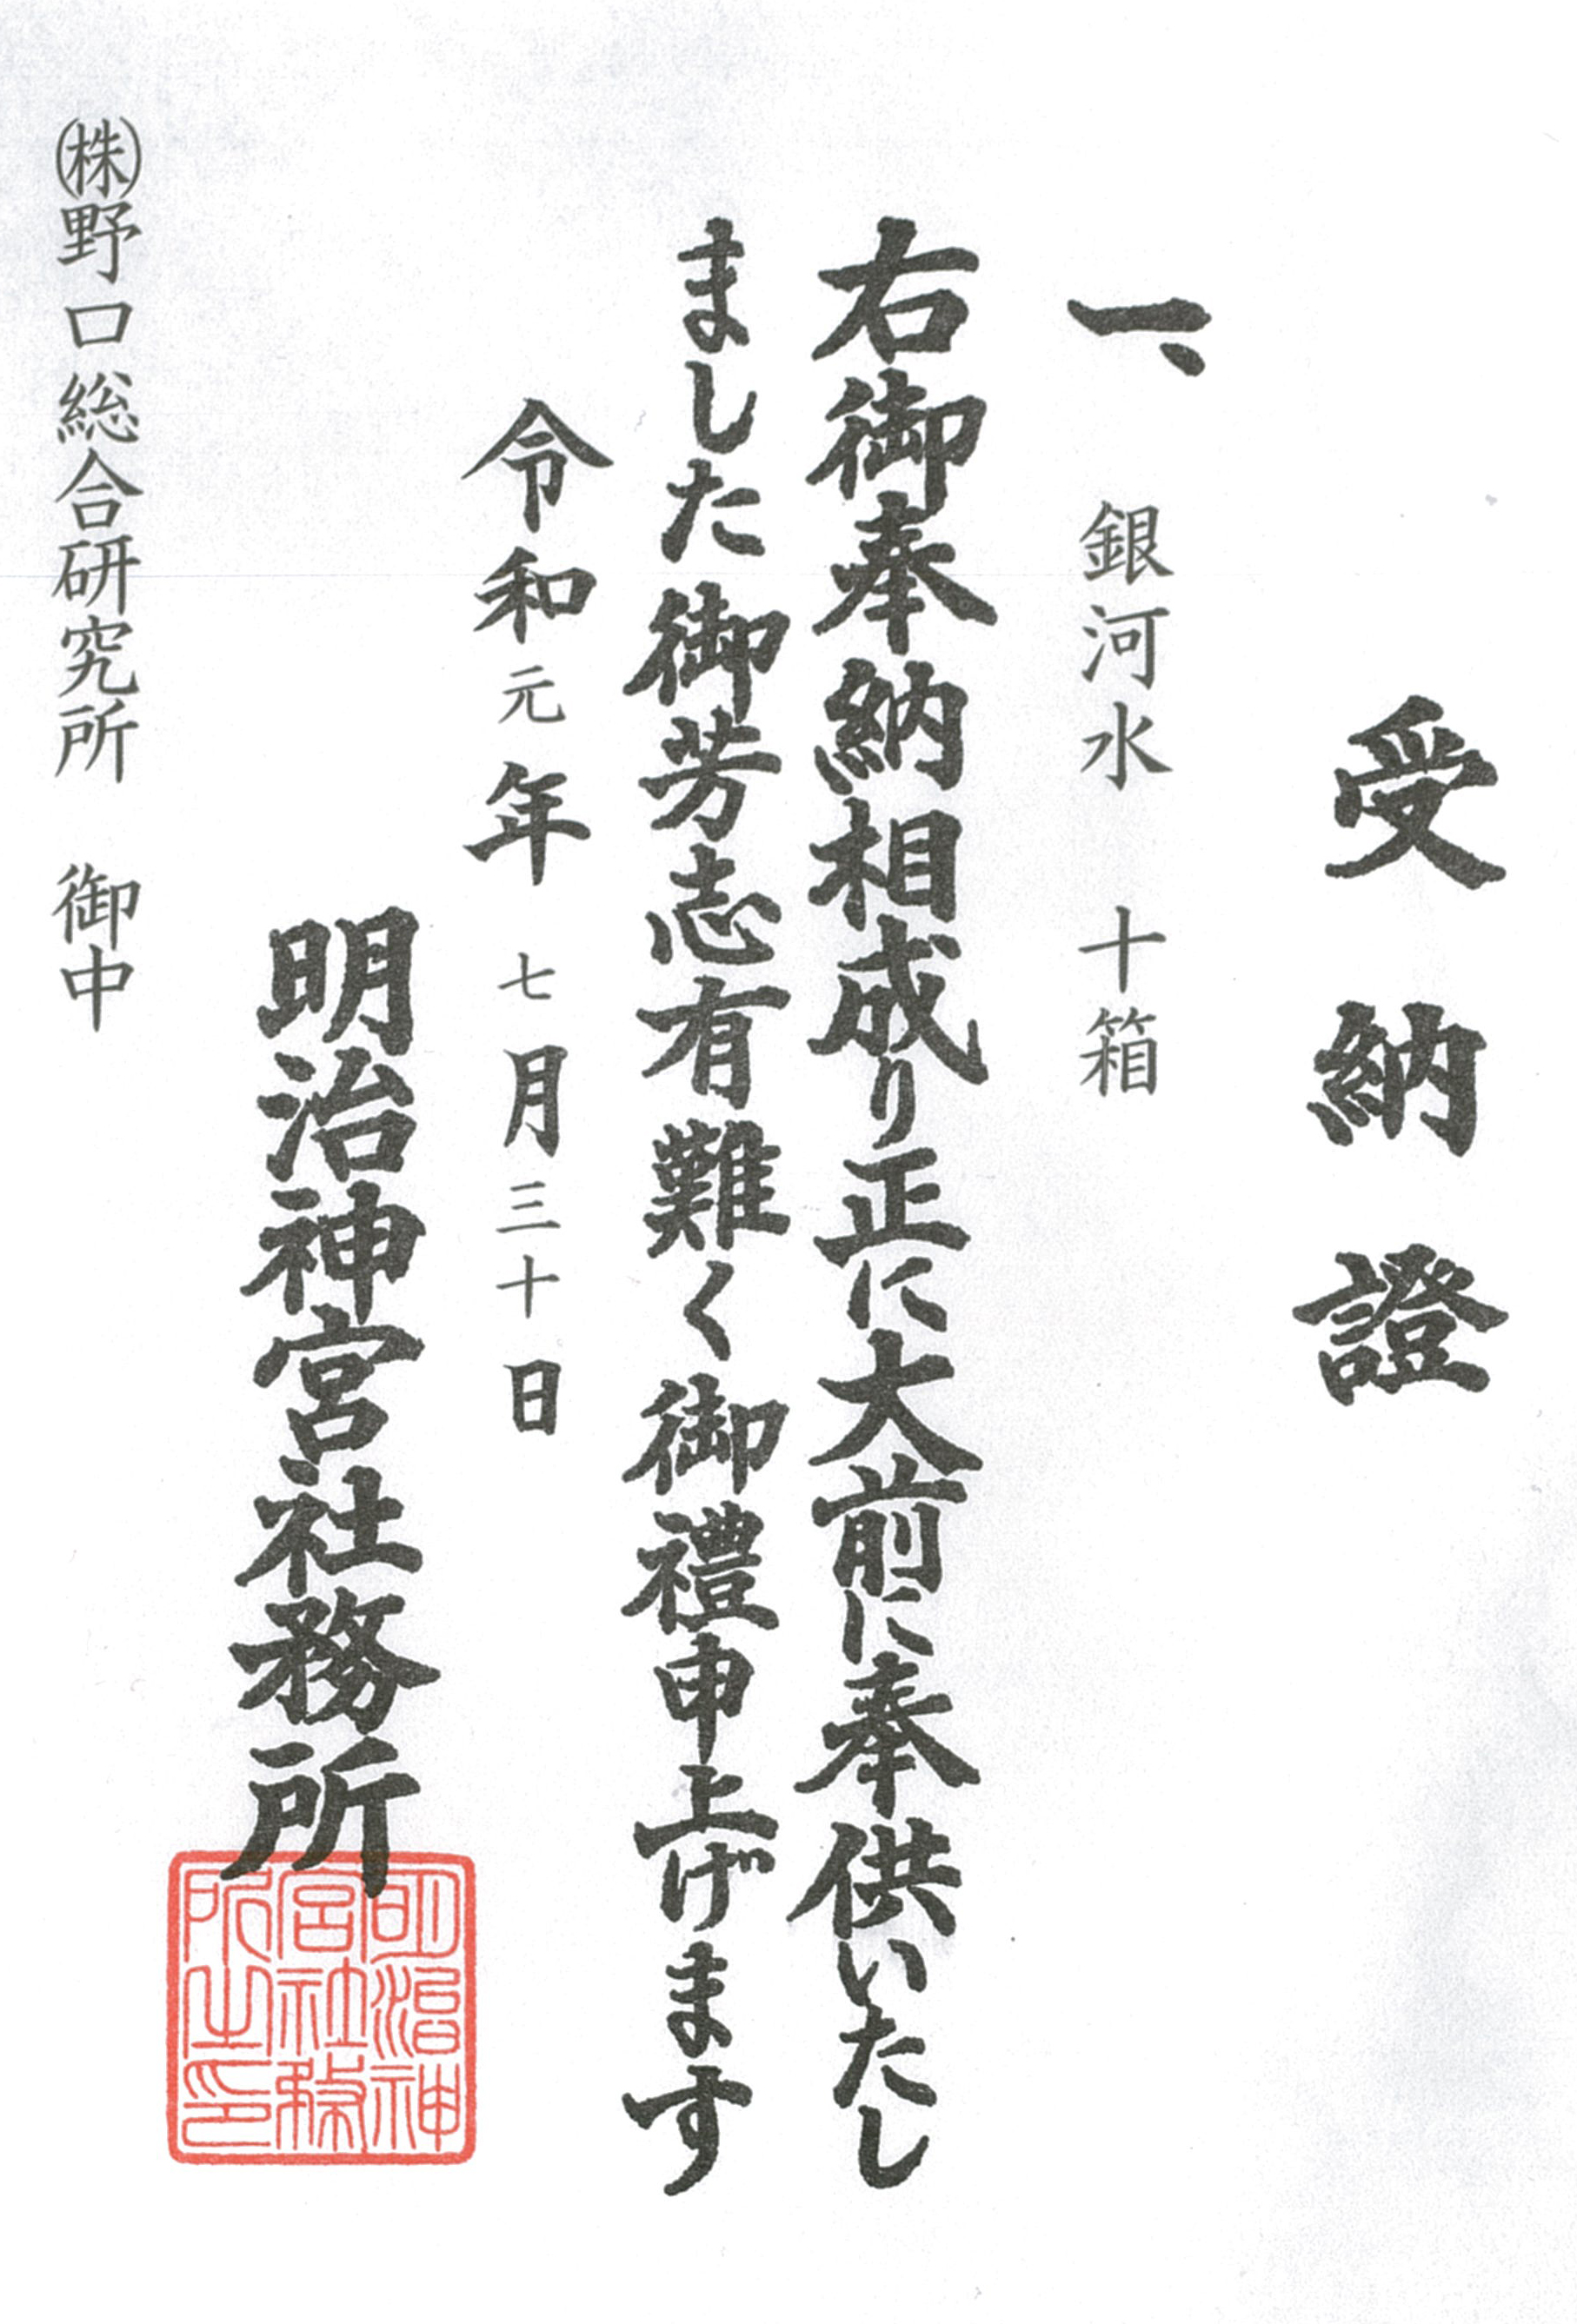 受納證
一、 銀河水 十箱
右御奉納相成り正に大前に奉供いたし
ました御芳志有難く御禮申上げます
令和元年 七月三十日
明治神宮社務所
明治神
宮社務
所之印
㈱野口総合研究所 御中